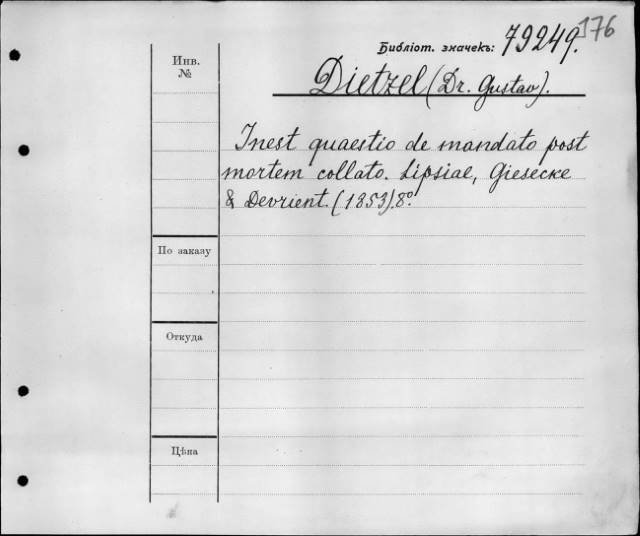 176
Библіот. значекъ: 79249.
Инв.
№
Dietzel (Dr. Gustav).
Inest quaestio de mandato post
mortem collato. Lipsiae, Giesecke
& Devrient. (1853). 8°.
По заказу
Откуда
Цѣна